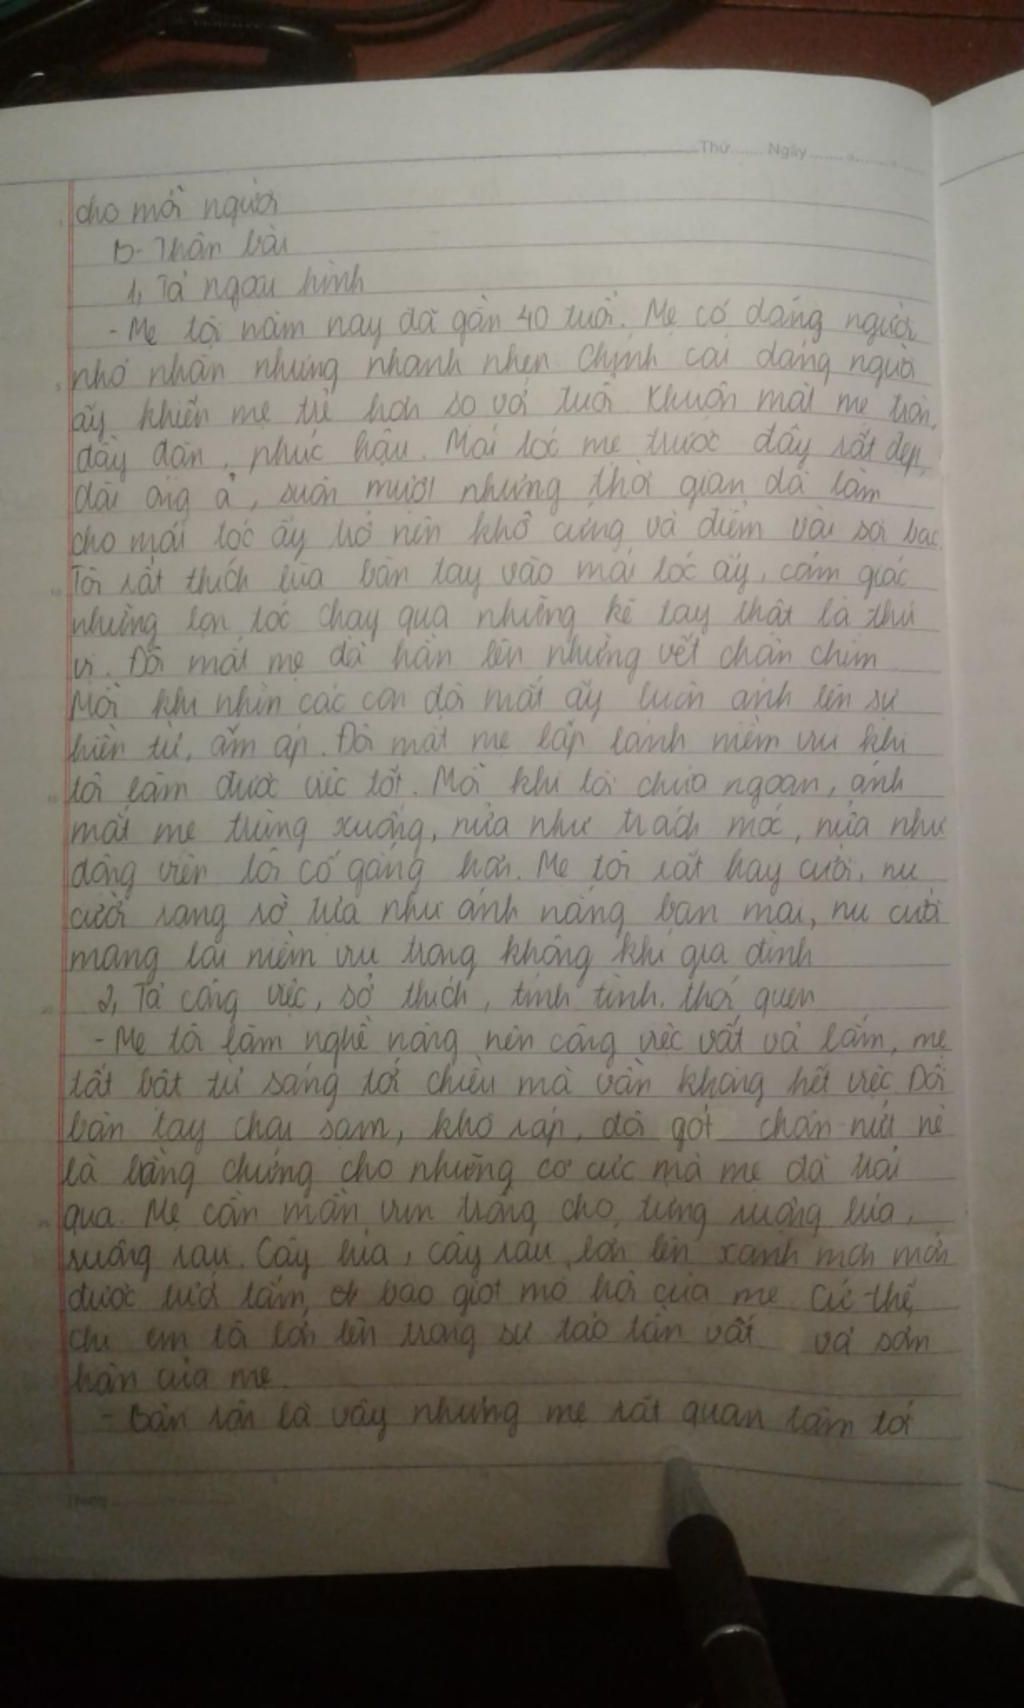 Thứ....... Ngày.............
cho mọi người
b- Thân bài
1, Tả ngoại hình
- Mẹ tôi năm nay đã gần 40 tuổi. Mẹ có dáng người
nhỏ nhắn nhưng nhanh nhẹn. Chính cái dáng người
ấy khiến mẹ trẻ hơn so với tuổi. Khuôn mặt mẹ tròn,
đầy đặn, phúc hậu. Mái tóc mẹ trước đây rất đẹp,
dài óng ả, suôn mượt nhưng thời gian đã làm
cho mái tóc ấy trở nên khô cứng và điểm vài sợi bạc.
Tôi rất thích lùa bàn tay vào mái tóc ấy, cảm giác
những lọn tóc chạy qua những kẽ tay thật là thú
vị. Đôi mắt mẹ đã hằn lên những vết chân chim
Mỗi khi nhìn các con đôi mắt ấy luôn ánh lên sự
hiền từ, ấm áp. Đôi mắt mẹ lấp lánh niềm vui khi
tôi làm được việc tốt. Mỗi khi tôi chưa ngoan, ánh
mắt mẹ trùng xuống, nửa như trách móc, nửa như
động viên tôi cố gắng hơn. Mẹ tôi rất hay cười, nụ
cười rạng rỡ tựa như ánh nắng ban mai, nụ cười
mang lại niềm vui trong không khí gia đình
2, Tả công việc, sở thích, tính tình, thói quen
- Mẹ tôi làm nghề nông nên công việc vất vả lắm, mẹ
tất bật từ sáng tới chiều mà vẫn không hết việc. Đôi
bàn tay chai sạm, khô ráp, đôi gót chân nứt nẻ
là bằng chứng cho những cơ cực mà mẹ đã trải
qua. Mẹ cần mẫn vun trồng cho từng ruộng lúa,
ruộng rau. Cây lúa, cây rau lớn lên xanh mơn mởn
được tưới tắm bao giọt mồ hôi của mẹ. Cứ thế,
chị em tôi lớn lên trong sự tảo tần vất vả sớm
hôm của mẹ.
- Bận rộn là vậy nhưng mẹ rất quan tâm tới